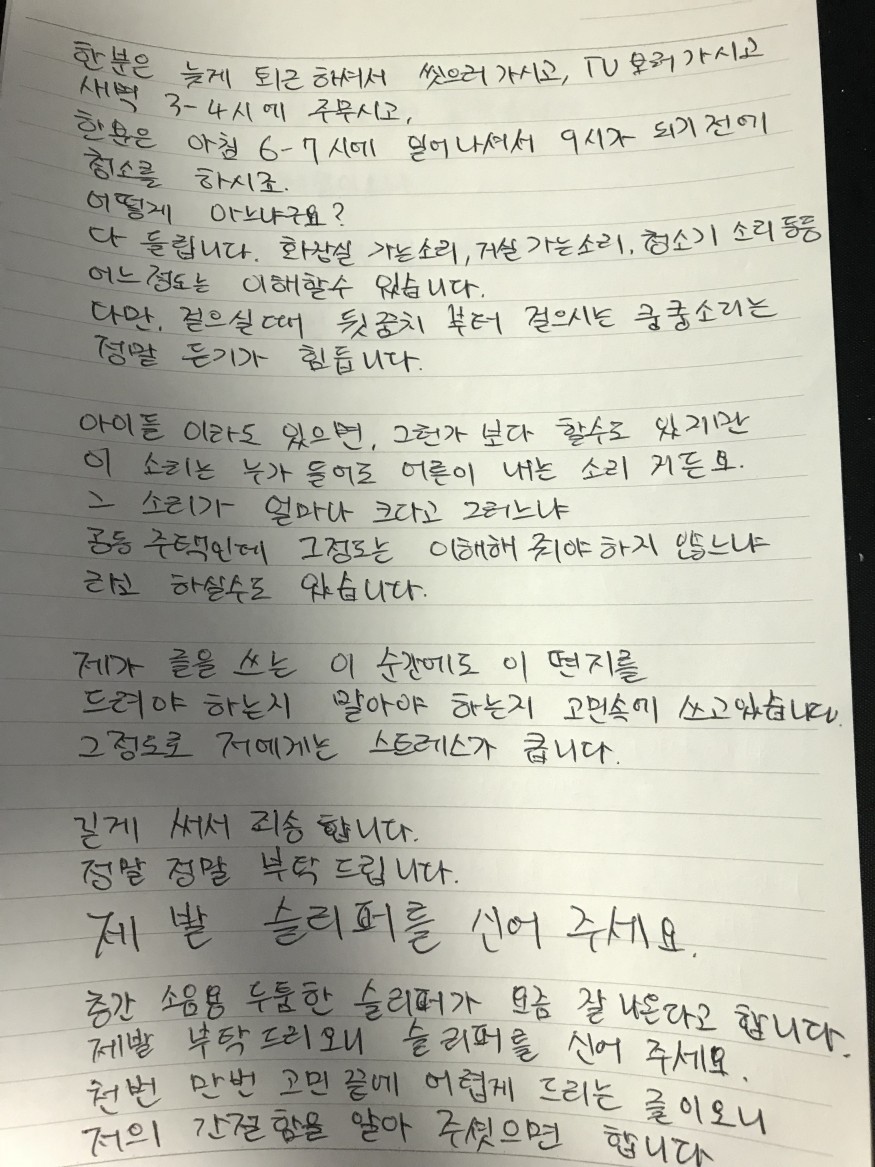 한분은 늦게 퇴근 하셔서 씻으러 가시고, TV 보러 가시고
새벽 3-4시에 주무시고,
한분은 아침 6-7시에 일어나셔서 9시가 되기 전에
청소를 하시죠.
어떻게 아느냐구요?
다 들립니다. 화장실 가는소리, 거실 가는소리, 청소기 소리 등등
어느정도는 이해할수 있습니다.
다만, 걸으실때 뒷꿈치 부터 걸으시는 쿵쿵소리는
정말 듣기가 힘듭니다.
아이들 이라도 있으면, 그런가 보다 할수도 있지만
이 소리는 누가 들어도 어른이 내는 소리 거든요.
그 소리가 얼마나 크다고 그러느냐
공동 주택인데 그정도는 이해해 줘야 하지 않느냐
라고 하실수도 있습니다.
제가 글을 쓰는 이 순간에도 이 편지를
드려야 하는지 말아야 하는지 고민속에 쓰고있습니다.
그정도로 저에게는 스트레스가 큽니다.
길게 써서 죄송 합니다.
정말 정말 부탁 드립니다.
제발 슬리퍼를 신어 주세요.
층간 소음용 두툼한 슬리퍼가 요즘 잘 나온다고 합니다.
제발 부탁드리오니 슬리퍼를 신어 주세요.
천번 만번 고민 끝에 어렵게 드리는 글이오니
저의 간절함을 알아 주셨으면 합니다